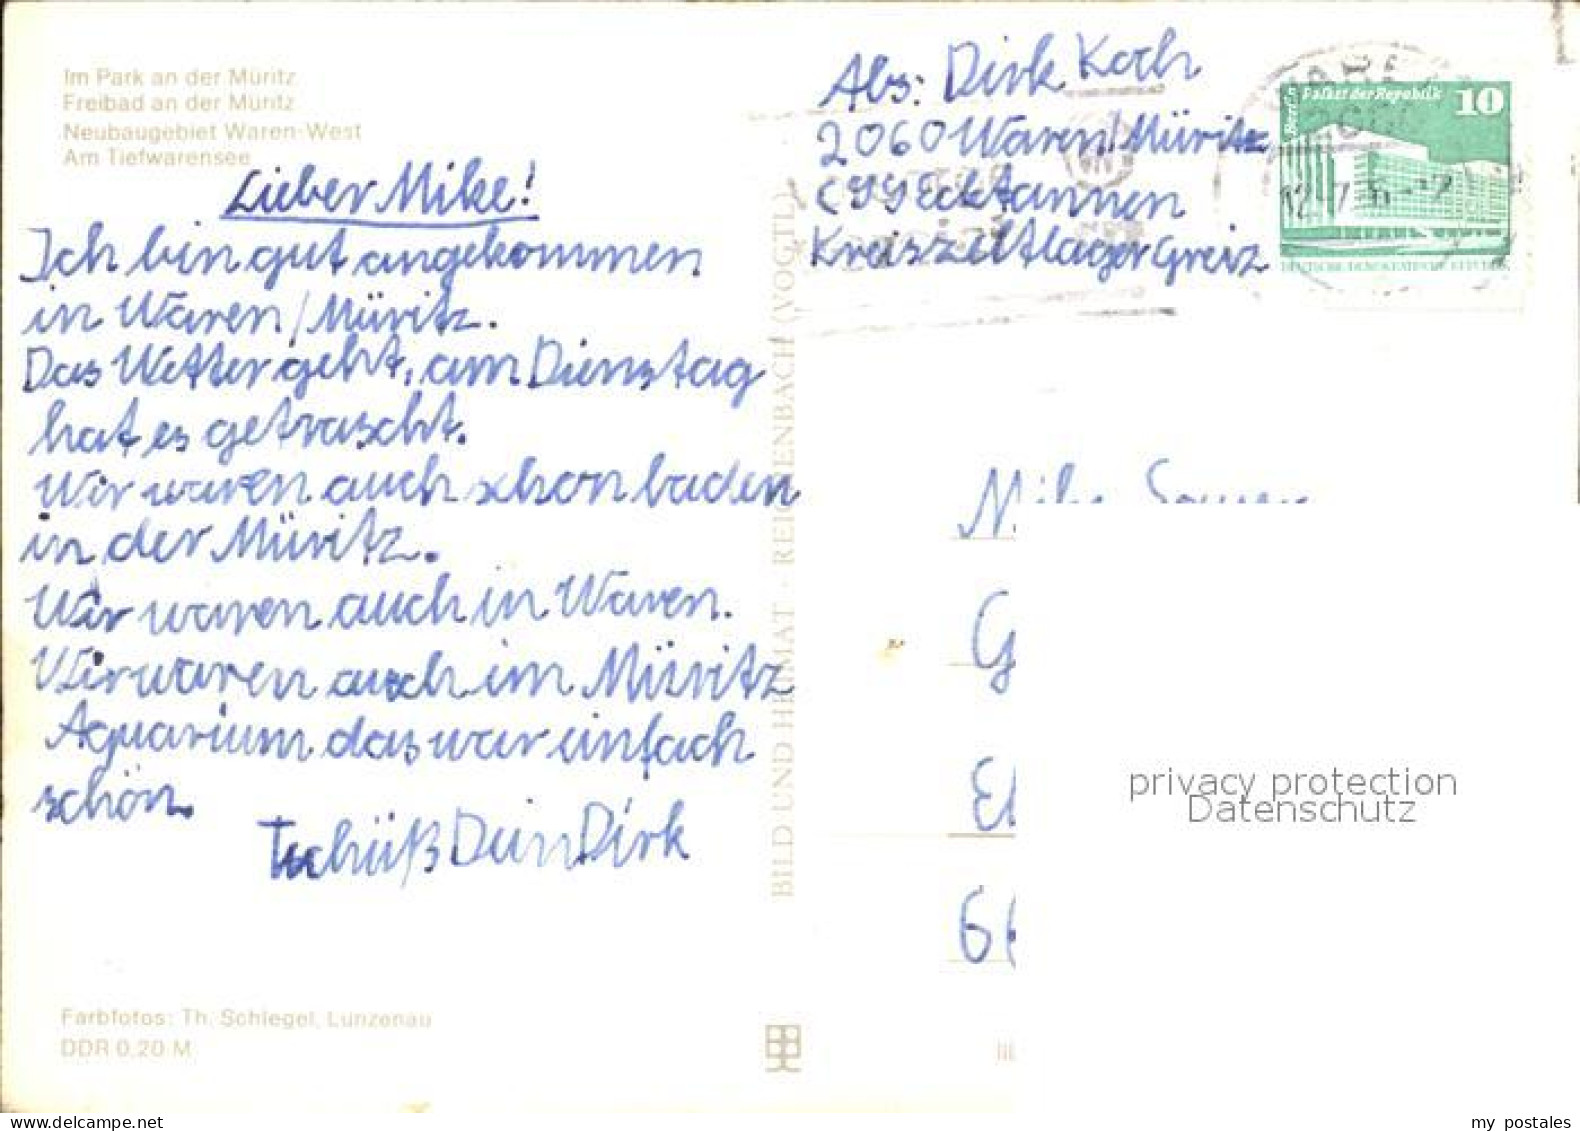 Im Park an der Müritz
Freibad an der Müritz
Neubaugebiet Waren-West
Am Tiefwarensee
Lieber Mike!
Ich bin gut angekommen
in Waren/Müritz.
Das Wetter geht, am Dienstag
hat es getrascht.
Wir waren auch schon baden
in der Müritz.
Wir waren auch in Waren.
Wir waren auch im Müritz
Aquarium das war einfach
schön.
Tschüß Dein Dirk
Farbfotos: Th. Schlegel, Lunzenau
DDR 0,20 M
BILD UND HEIMAT · REICHENBACH (VOGTL)
Abs: Dirk Koch
2060 Waren/Müritz
Ecktannen
Kreiszeltlager Greiz
Berlin Palast der Republik 10
DEUTSCHE DEMOKRATISCHE REPUBLIK
G
66
privacy protection
Datenschutz
my postales